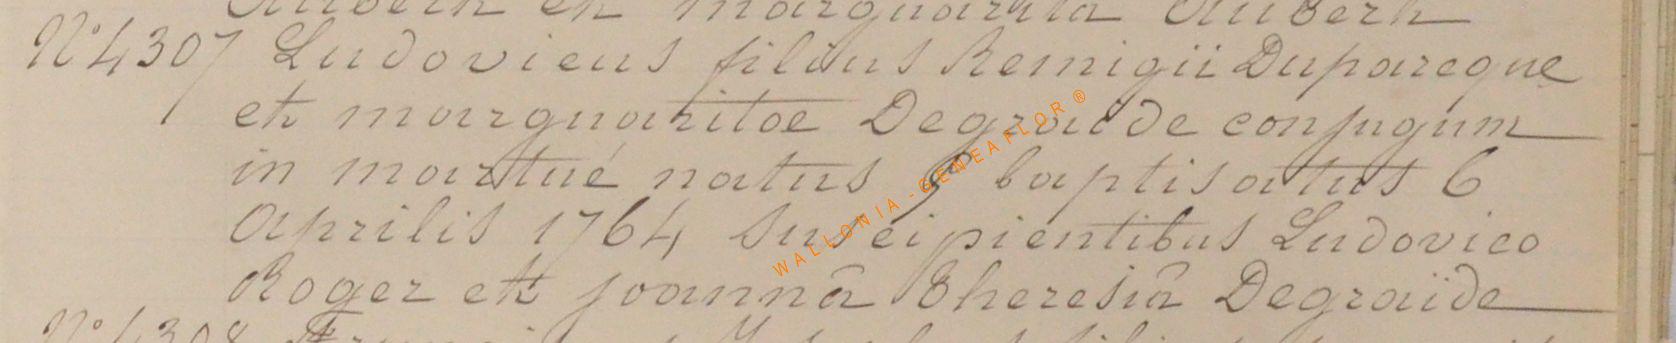 Aubert et marguarita Aubert
N° 4307 Ludovicus filius Remigii Duparcque
et marguaritae Degraide conjugum
in martué natus 5 baptisatus 6
Aprilis 1764 suscipientibus Ludovico
Roger et joannâ theresiâ Degraïde
N° 4308
WALLONIA - GENEAFLOR ®